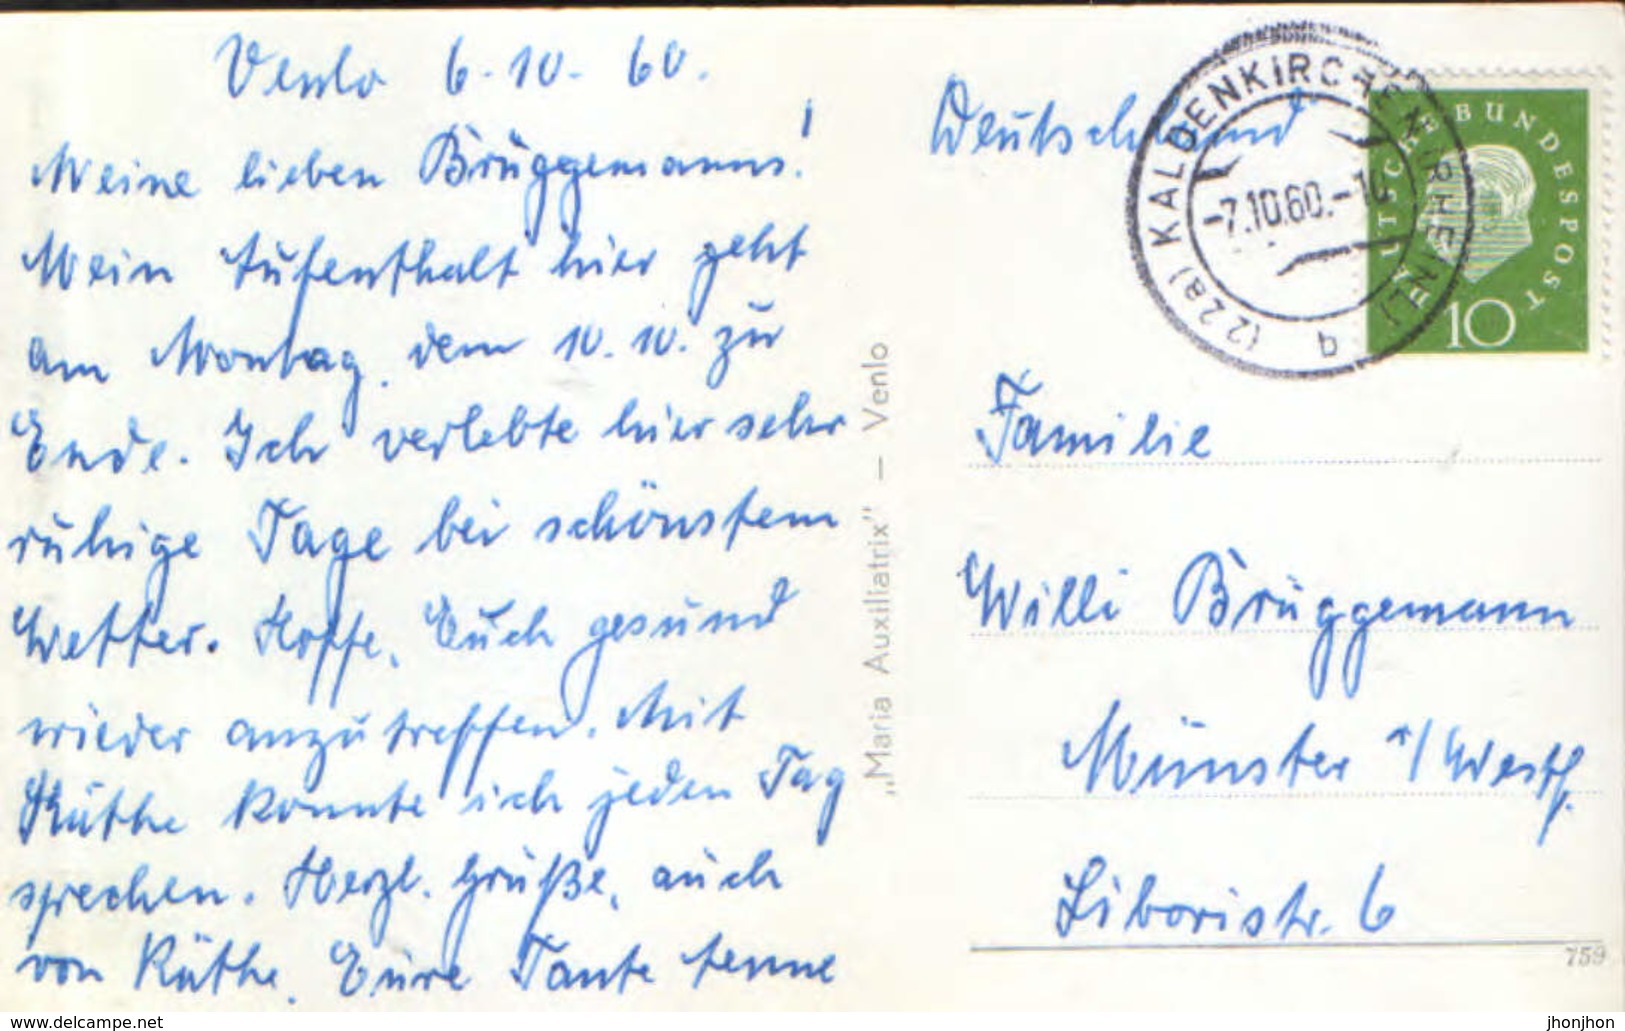 Venlo 6.10.60.
Meine lieben Brüggemanns!
Mein Aufenthalt hier geht
am Montag, dem 10.10. zu
Ende. Ich verlebte hier sehr
ruhige Tage bei schönstem
Wetter. Hoffe, Euch gesund
wieder anzutreffen. Mit
Käthe konnte ich jeden Tag
sprechen. Herzl. Grüße, auch
von Käthe, Eure Tante Änne
„Maria Auxiliatrix" — Venlo
Deutschland
(22a) KALDENKIRCHEN (RHEINL)
-7.10.60.-10
b
DEUTSCHE BUNDESPOST
10
Familie
Willi Brüggemann
Münster i/Westf.
Liboristr. 6
759
www.delcampe.net
jhonjhon